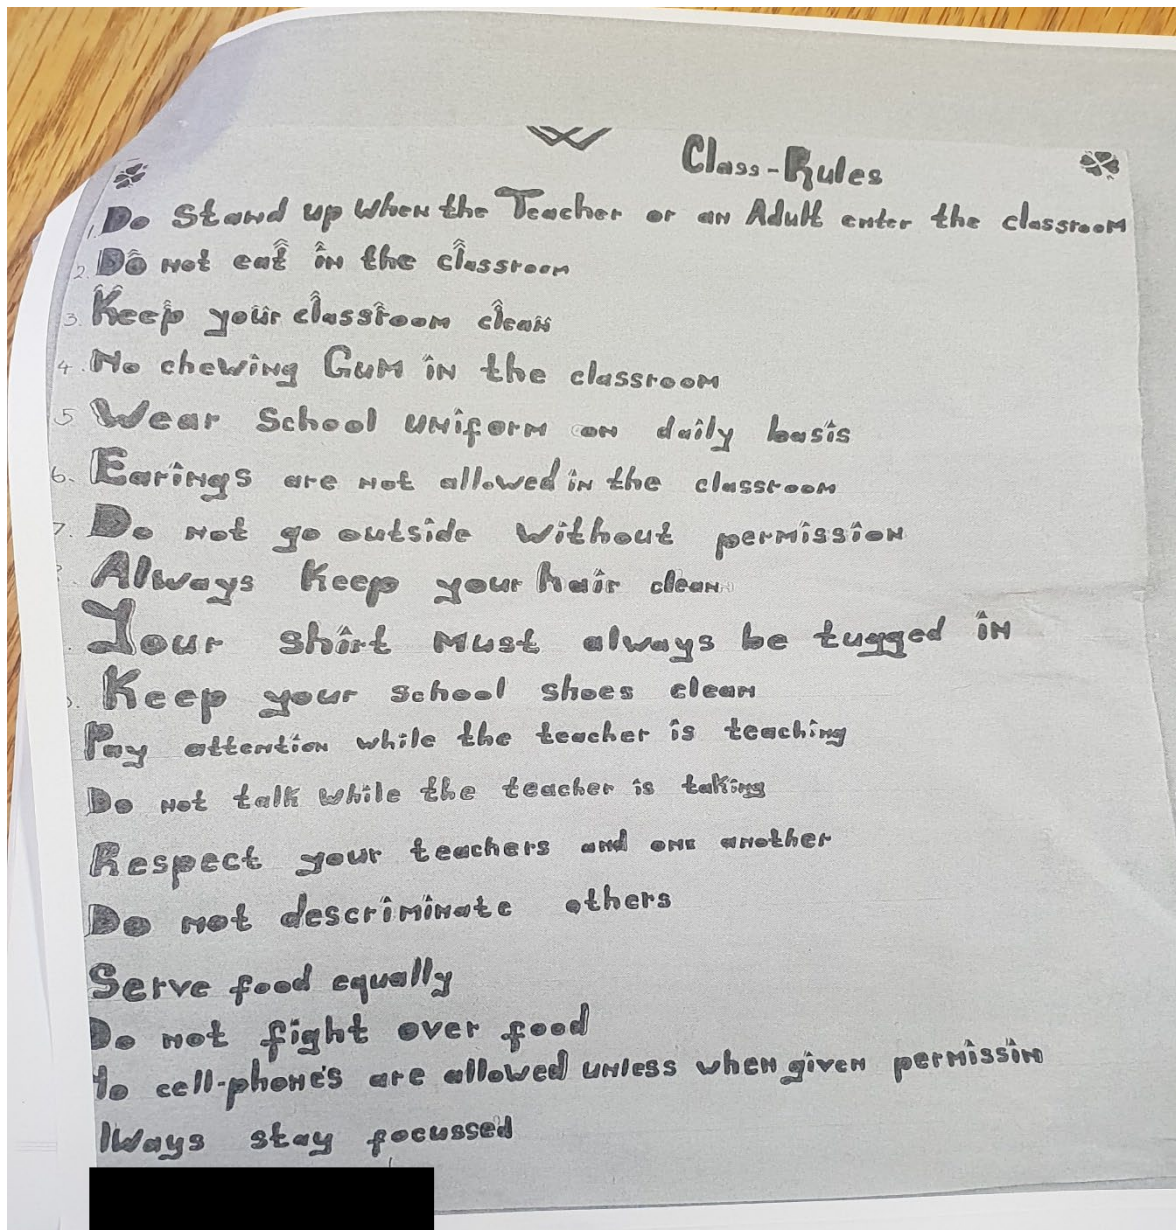 Class-Rules
1. Do Stand up When the Teacher or an Adult enter the classroom
2. Do not eat in the classroom
3. Keep your classroom clean
4. No chewing Gum in the classroom
5. Wear School uniform on daily basis
6. Earings are not allowed in the classroom
7. Do not go outside without permission
Always Keep your hair clean
Your shirt must always be tugged in
Keep your school shoes clean
Pay attention while the teacher is teaching
Do not talk while the teacher is taking
Respect your teachers and one another
Do not descriminate others
Serve food equally
Do not fight over food
o cell-phone's are allowed unless when given permissin
lways stay focussed